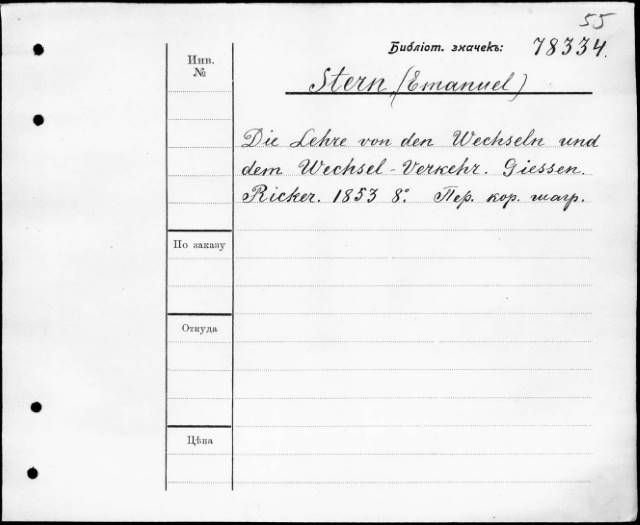 55
Библіот. значекъ: 78334.
Инв.
№
Stern, (Emanuel)
Die Lehre von den Wechseln und
dem Wechsel-Verkehr. Giessen.
Ricker. 1853 8º. Пер. кор. шагр.
По заказу
Откуда
Цѣна